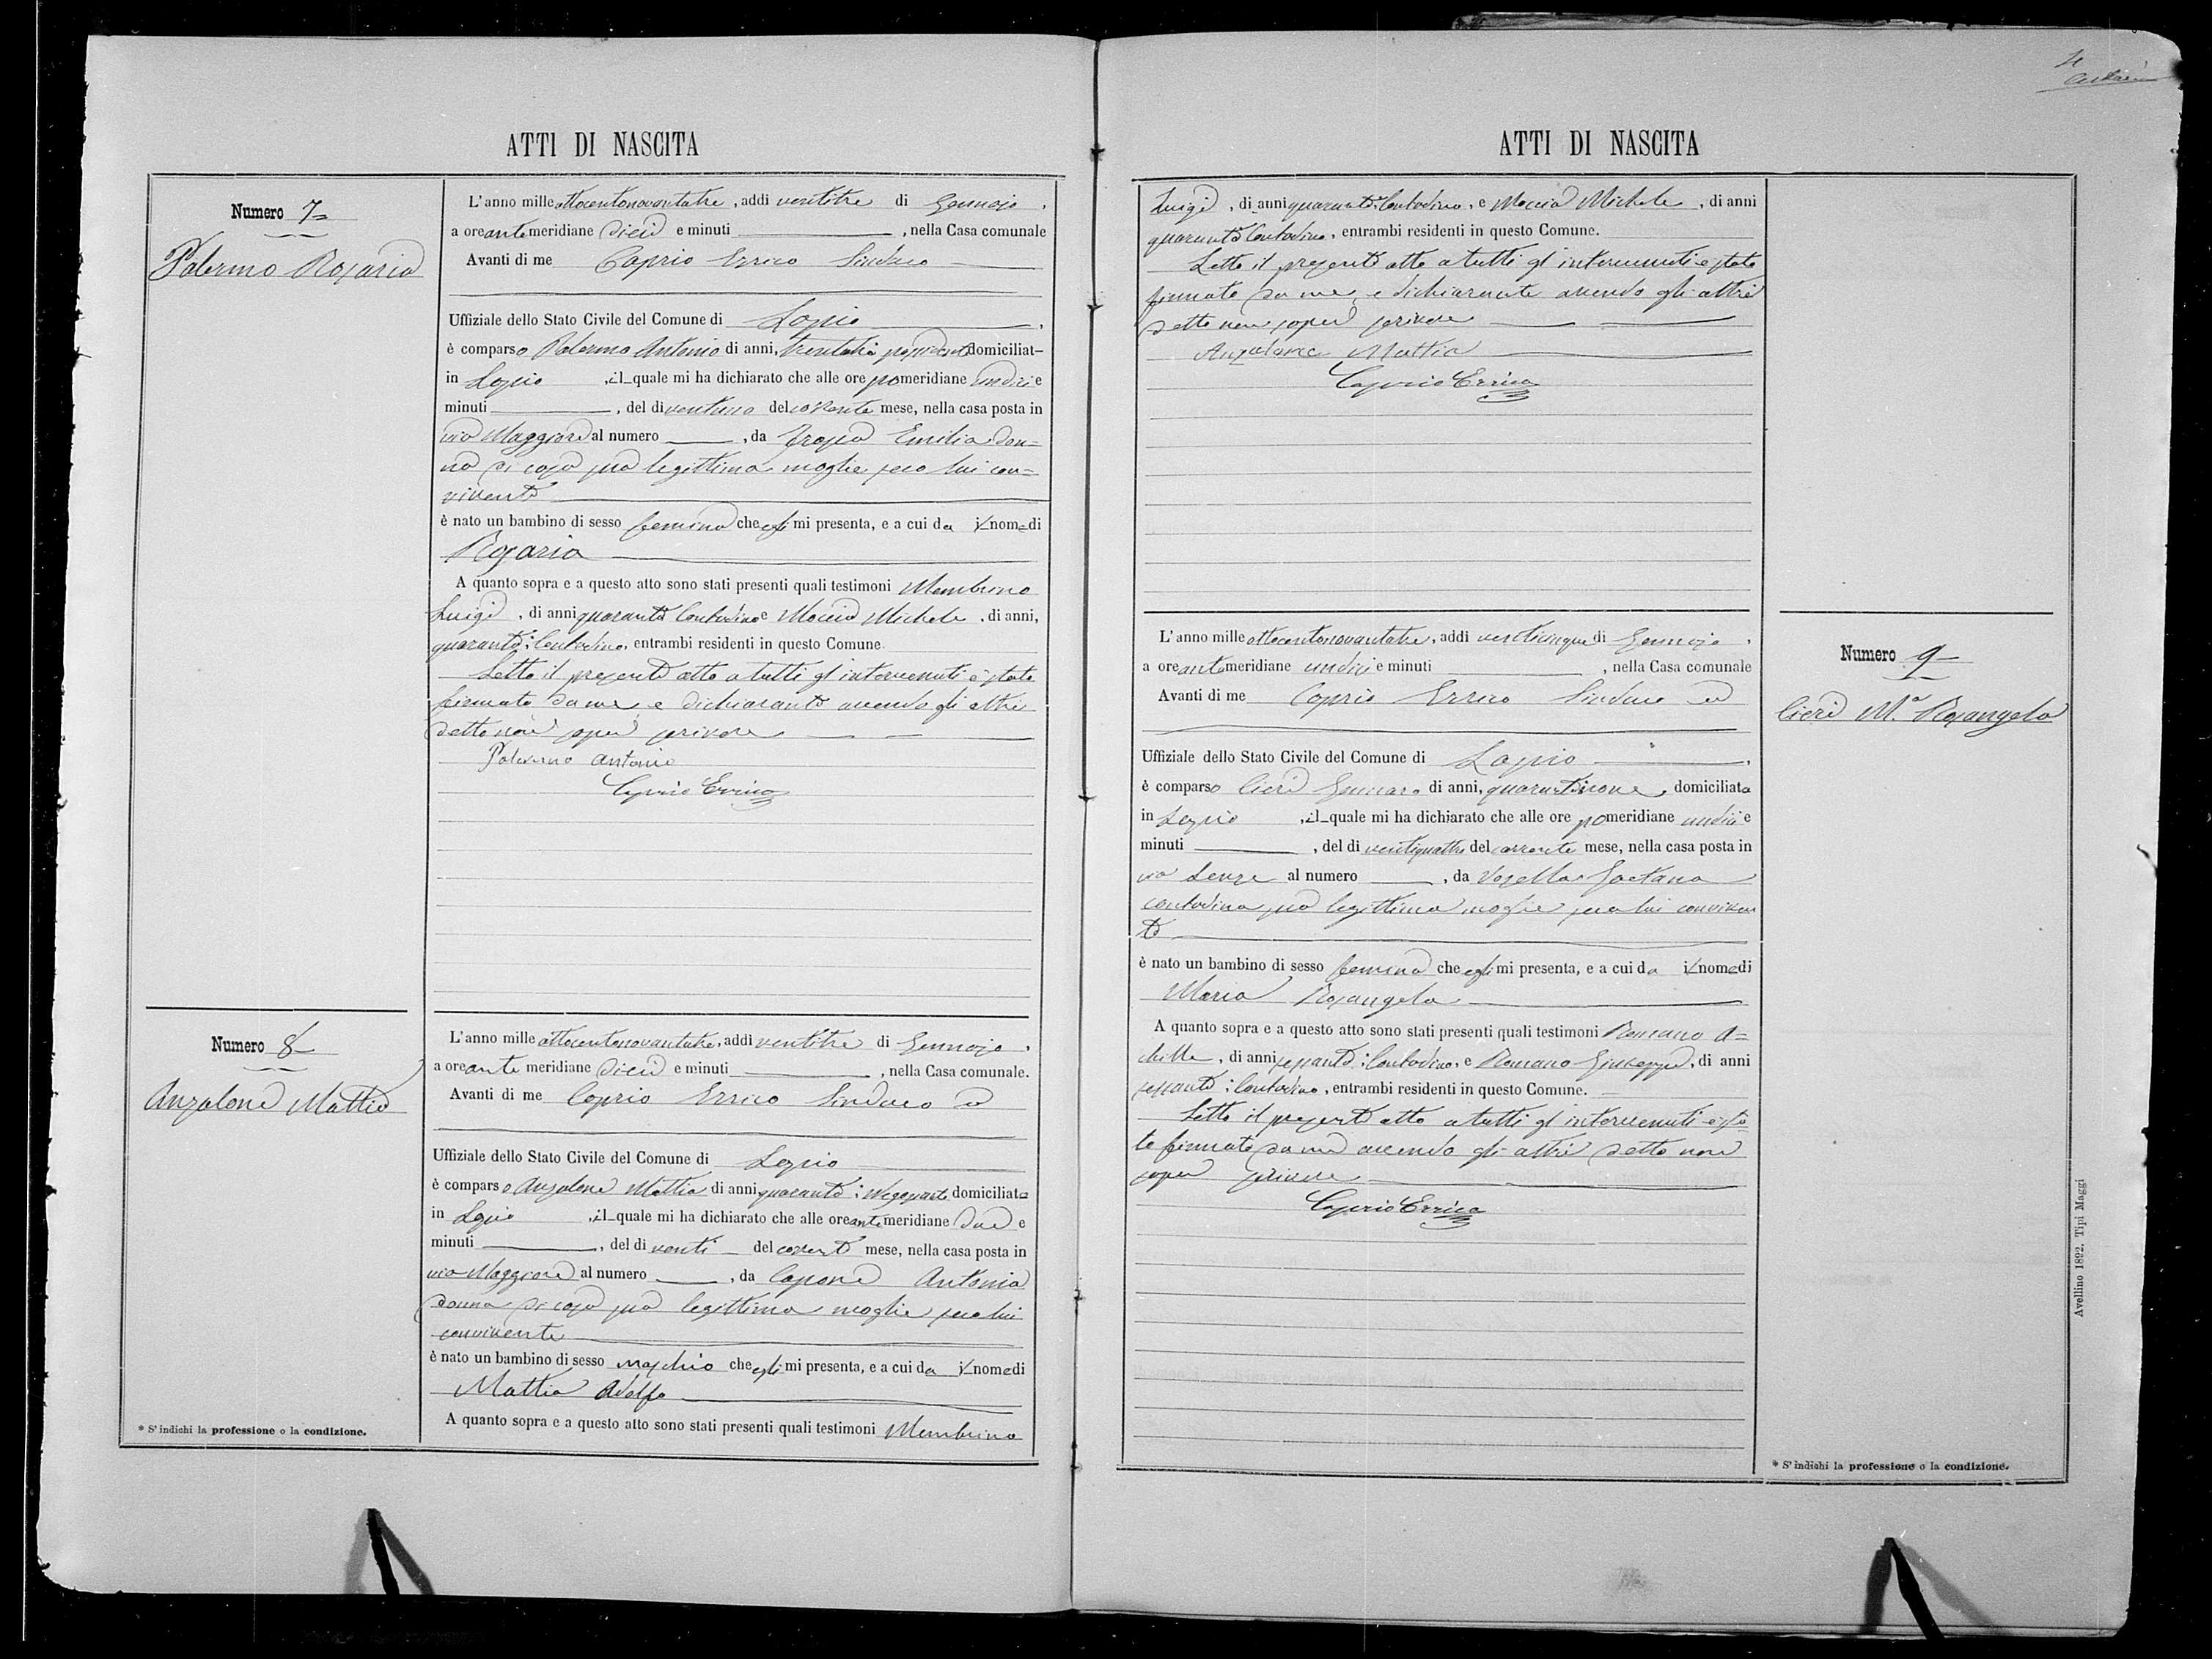 ATTI DI NASCITA
Numero 7
Palermo Rosaria
L'anno mille ottocentonovantatre, addi ventitre di Gennajo,
a ore antemeridiane dieci e minuti , nella Casa comunale
Avanti di me Caprio Errico Sindaco
Uffiziale dello Stato Civile del Comune di Lapio
è comparso Palermo Antonio di anni, domiciliat
in Lapio , il quale mi ha dichiarato che alle ore pomeridiane undici e
minuti , del dì ventuno del corrente mese, nella casa posta in
via Maggiore al numero , da Emilia don=
na di casa sua legittima moglie seco lui con=
vivente
è nato un bambino di sesso femina che egli mi presenta, e a cui da il nome di
Rosaria
A quanto sopra e a questo atto sono stati presenti quali testimoni Membrino
Luigi, di anni quaranta Contadino e Moccia Michele, di anni,
quaranta; Contadino, entrambi residenti in questo Comune.
Letto il presente atto a tutti gl'intervenuti è stato
firmato da me, e dichiarante avendo gli altri
detto non saper scrivere
Palermo Antonio
Caprio Errico
Numero 8
Anzalone Mattia
L'anno mille ottocentonovantatre, addi ventitre di Gennajo,
a ore antemeridiane dieci e minuti , nella Casa comunale.
Avanti di me Caprio Errico Sindaco ed
Uffiziale dello Stato Civile del Comune di Lapio
è comparso Anzalone Mattia di anni quaranta; Negoziante domiciliato
in Lapio , il quale mi ha dichiarato che alle ore antemeridiane due e
minuti , del dì venti del corrente mese, nella casa posta in
via Maggiore al numero , da Capone Antonia
donna di casa sua legittima moglie seco lui
convivente
è nato un bambino di sesso maschio che egli mi presenta, e a cui da il nome di
Mattia Adolfo
A quanto sopra e a questo atto sono stati presenti quali testimoni Membrino
* S'indichi la professione o la condizione.
4
ATTI DI NASCITA
Luigi, di anni quaranta; Contadino, e Moccia Michele, di anni
quaranta Contadino, entrambi residenti in questo Comune.
Letto il presente atto a tutti gl'intervenuti è stato
firmato da me, e dichiarante avendo gli altri
detto non saper scrivere
Anzalone Mattia
Caprio Errico
Numero 9
Cieri M.a Rosangela
L'anno mille ottocentonovantatre, addi venticinque di Gennajo,
a ore antemeridiane undici e minuti , nella Casa comunale
Avanti di me Caprio Errico Sindaco ed
Uffiziale dello Stato Civile del Comune di Lapio
è comparso Cieri Gennaro di anni, quarantanove, domiciliato
in Lapio , il quale mi ha dichiarato che alle ore pomeridiane undici e
minuti , del dì ventiquattro del corrente mese, nella casa posta in
via Lenze al numero , da Gaetana
contadina sua legittima moglie seco lui conviven
te
è nato un bambino di sesso femina che egli mi presenta, e a cui da il nome di
Maria Rosangela
A quanto sopra e a questo atto sono stati presenti quali testimoni Romano A=
chille, di anni sessanta; Contadino, e Romano Giuseppe, di anni
sessanta; Contadino, entrambi residenti in questo Comune.
Letto il presente atto a tutti gl'intervenuti è sta
to firmato da me avendo gli altri detto non
saper scrivere
Caprio Errico
* S'indichi la professione o la condizione.
Avellino 1892. Tipi Maggi